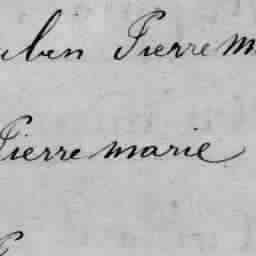 Pierre
Pierre marie